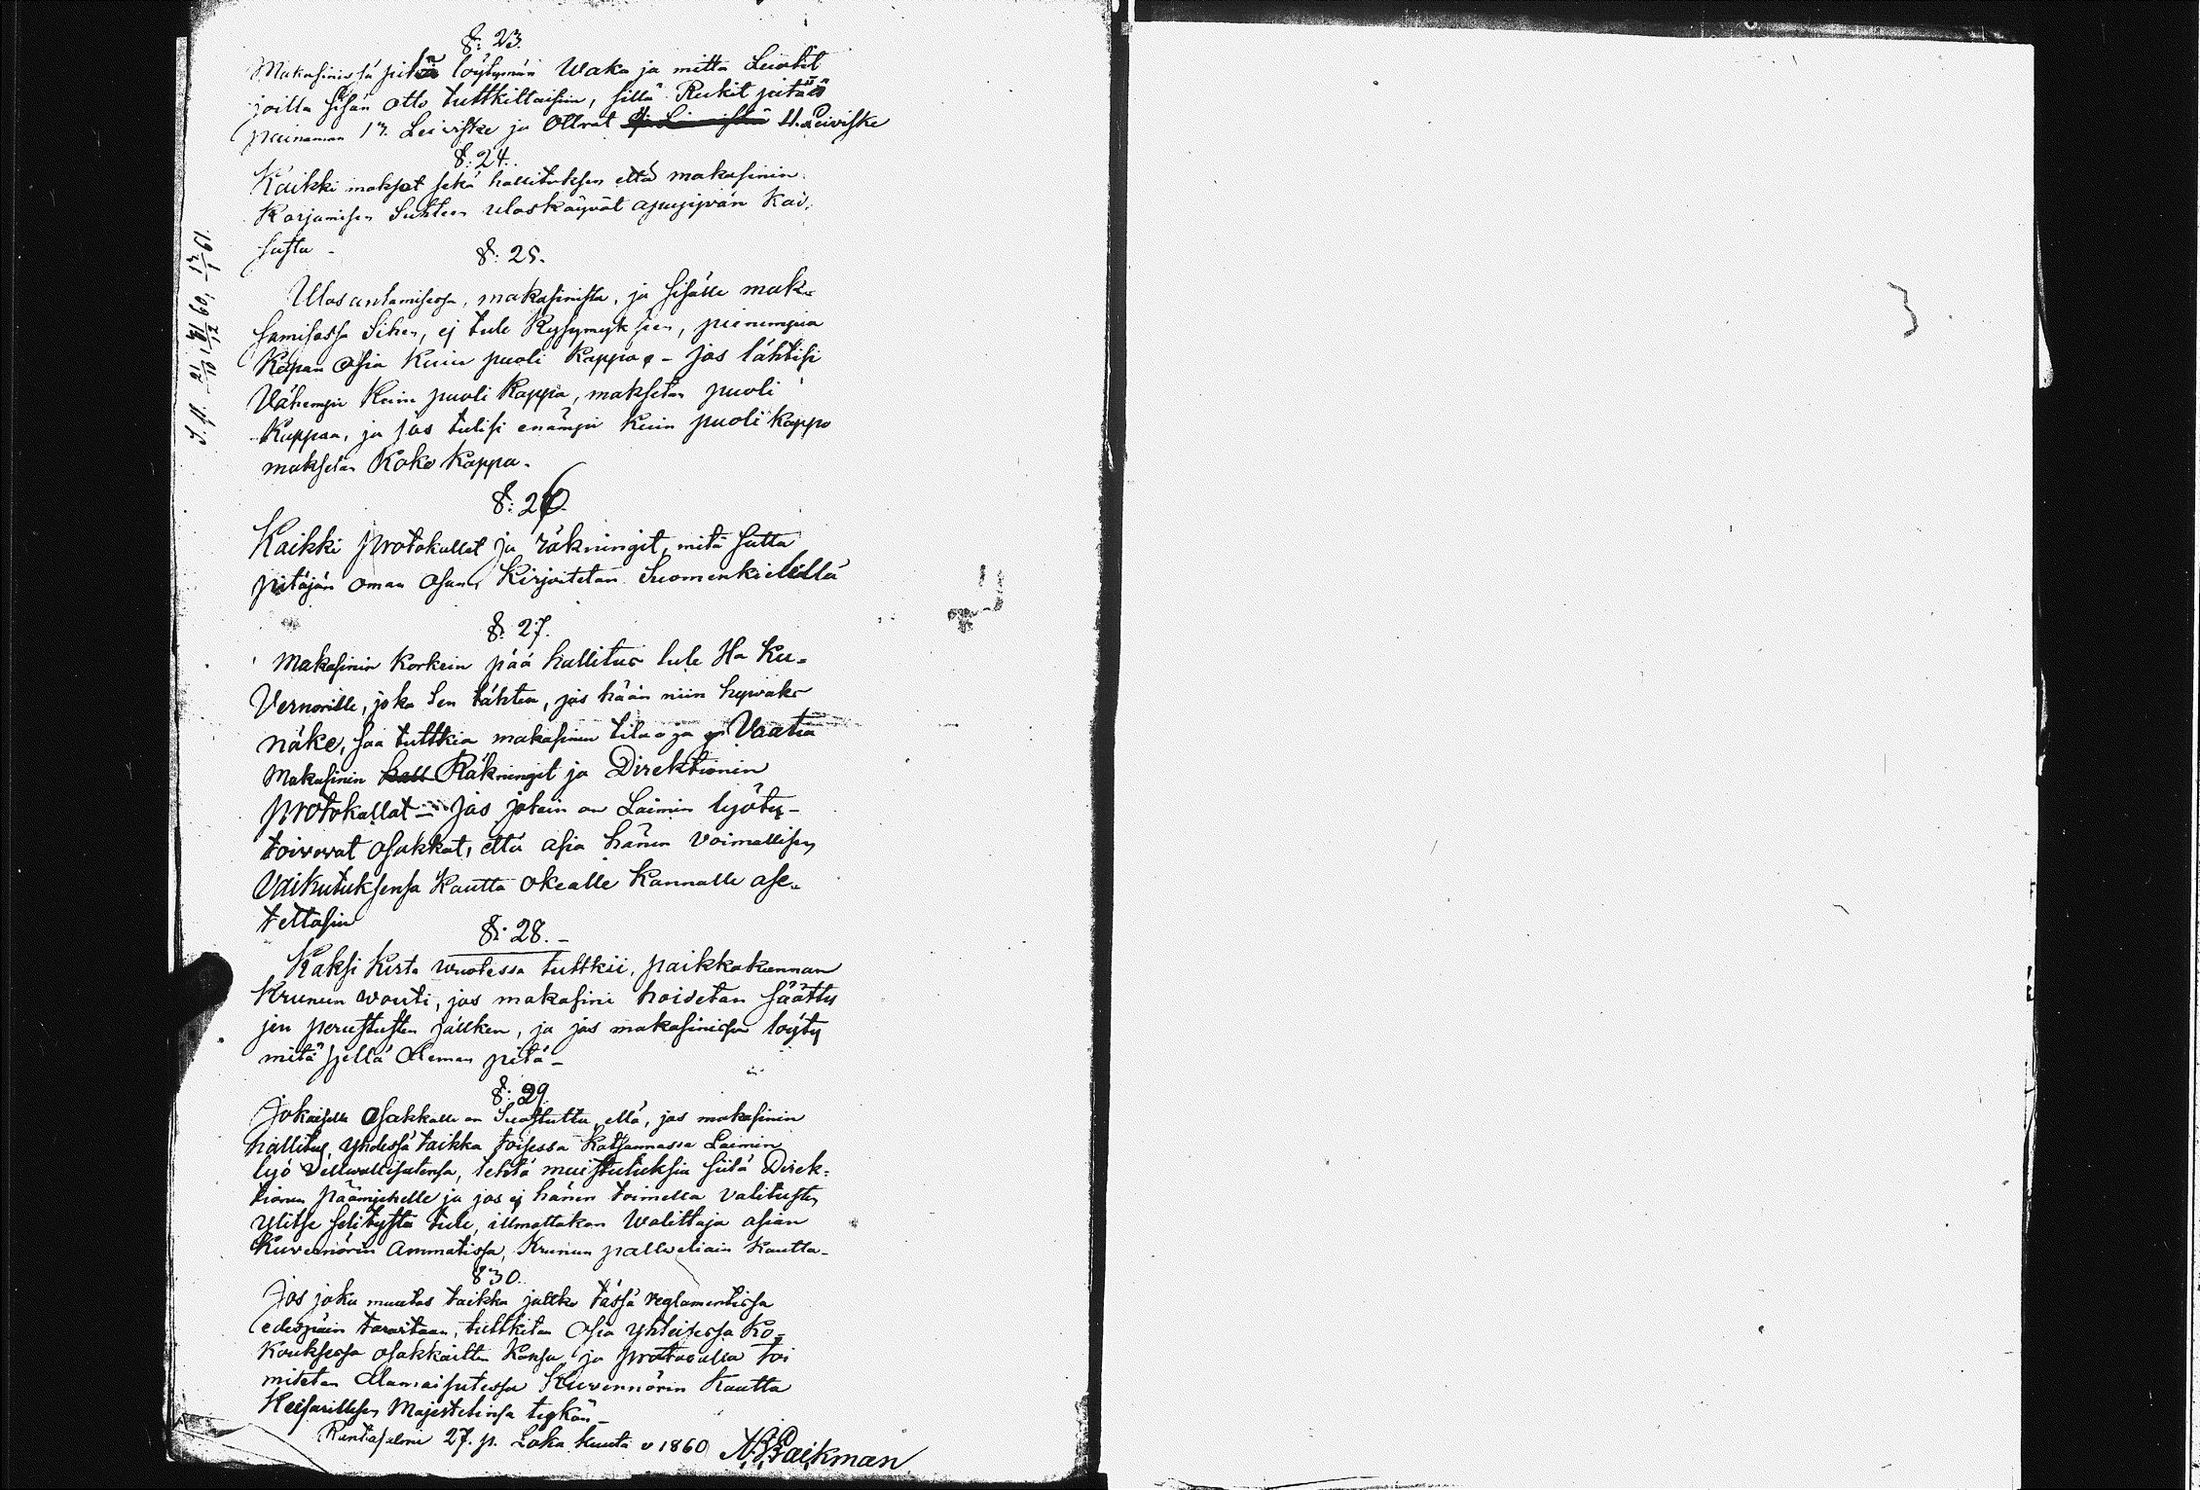 §: 23.
Makasinista pitää löytymän Waka ja mitta Leiolit
joilla sisän otto tuttkittaisiin, sillä Rukit pitään
painaman 17. Leiviske ja Ottrat 11. Leiviske
§: 24.
Kaikki maksot sekä hallituksen että makasinin
Korjamisen Suhteen uloskäyvät apujyvän Kai,
susta -
§: 25.
Ulosantamisessa, makasinista, ja sisälle mak-
samisessa Sihen, ej tule Kysymyksen, pienempiä
Kapan Osia Kuin puoli Kappaa - jos lähtisi
Vähempi Kuin puoli Kappa, maksetan puoli
Kappaa, ja jos tulisi enämpi Kuin puoli kappa
maksetan Koko Kappa.
§: 26.
Kaikki protokollat ja räkningit, mitä sutta
pitäjän oman Osan, Kirjoitetan Suomenkielellä
§: 27.
Makasinin Korkein pää hallitus tule Ha Ku-
Vernorille, joka Sen tähten, jos hään niin hywäks
näke, saa tuttkia makasinin tilaa ja Vaatia
Makasinin hall Räkningit ja Direktionin
protokollat - Jos jotain on Laimin lyöty -
toivovat Osakkat, että asia hänen voimallisen
Vaikutuksensa Kautta okealle Kannalle ase-
tettasiin
§: 28. -
Kaksi Kirta wuotessa tuttkii, paikkakunnan
Krunun wouti, jos makasini hoidetan säätty
jen perustusten jälkken, ja jos makasinissa löyty
mitä sjellä Oleman pitä -
§: 29.
Jokaisella Osakkalle on Suostuttu, että, jos makasinin
hallitus, yhdessä taikka toisessa Katsannossa Laimin
lyö Velwollisutensa, tehtä muistutuksia siitä Direk-
tionin päämjehelle ja jos ej hänen toimella valitusten
ylitse selitystä tule, illmottakan Walittaja asian
Kuvernörin Ammatissa, Krunun pallveliain Kautta -
§ 30.
Jos joku muutos taikka jattko tässä reglamentissa
edespäin tarvitaan, tuttkitan Osia yhteisessa Ko-
kouksessa osakkaitten Kansa, ja protocolla toi
mitetan Alamaisutessa Kuvernnörin Kautta
Keisarillisen Majestetinsa tykön -
Rantasalmi 27. p. Loka kuuta v 1860 N. P. Paikman